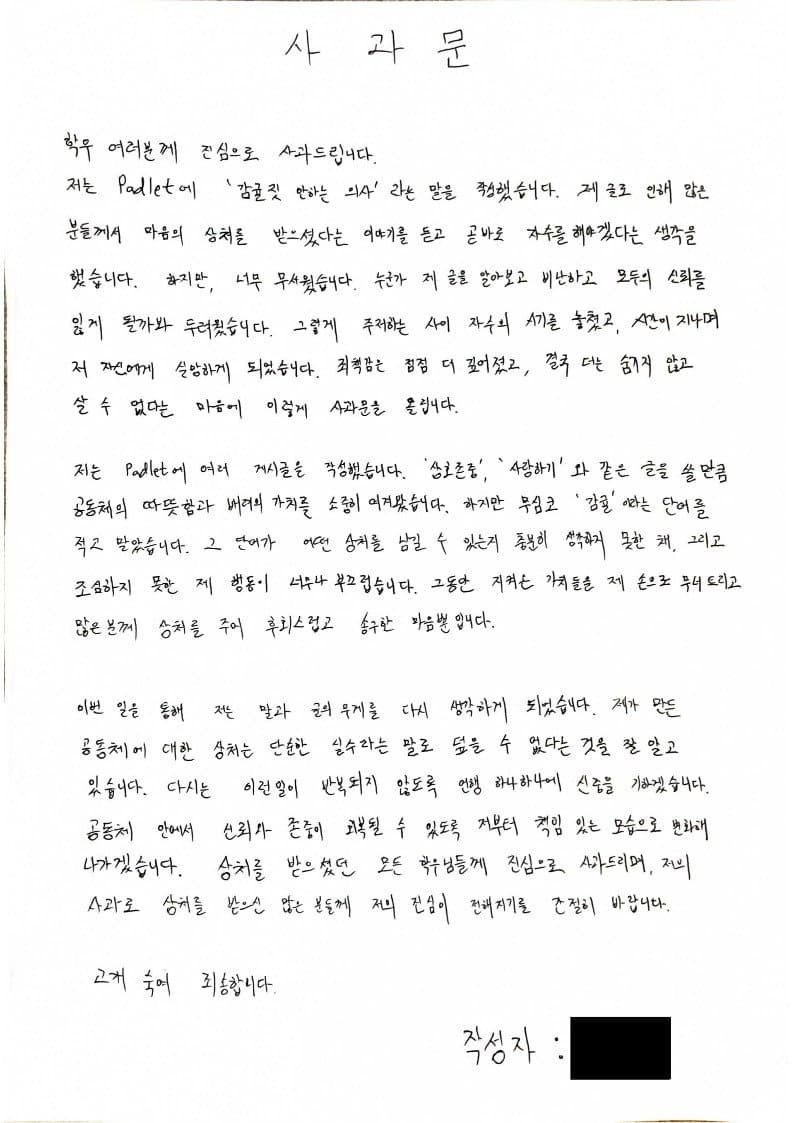 사 과 문
학우 여러분께 진심으로 사과드립니다.
저는 Padlet에 '감귤짓 안하는 의사' 라는 말을 작성했습니다. 제 글로 인해 많은
분들께서 마음의 상처를 받으셨다는 이야기를 듣고 곧바로 자수를 해야겠다는 생각을
했습니다. 하지만, 너무 무서웠습니다. 누군가 제 글을 알아보고 비난하고 모두의 신뢰를
잃게 될까봐 두려웠습니다. 그렇게 주저하는 사이 자수의 시기를 놓쳤고, 시간이 지나며
저 자신에게 실망하게 되었습니다. 죄책감은 점점 더 깊어졌고, 결국 더는 숨기지 않고
살 수 없다는 마음에 이렇게 사과문을 올립니다.
저는 Padlet에 여러 게시글을 작성했습니다. '상호존중', '사랑하기' 와 같은 글을 쓸 만큼
공동체의 따뜻함과 배려의 가치를 소중히 여겨왔습니다. 하지만 무심코 '감귤' 이라는 단어를
적고 말았습니다. 그 단어가 어떤 상처를 남길 수 있는지 충분히 생각하지 못한 채, 그리고
조심하지 못한 제 행동이 너무나 부끄럽습니다. 그동안 지켜온 가치들을 제 손으로 무너뜨리고
많은 분께 상처를 주어 후회스럽고 송구한 마음뿐입니다.
이번 일을 통해 저는 말과 글의 무게를 다시 생각하게 되었습니다. 제가 만든
공동체에 대한 상처는 단순한 실수라는 말로 덮을 수 없다는 것을 잘 알고
있습니다. 다시는 이런일이 반복되지 않도록 언행 하나하나에 신중을 기하겠습니다.
공동체 안에서 신뢰와 존중이 회복될 수 있도록 저부터 책임 있는 모습으로 변화해
나가겠습니다. 상처를 받으셨던 모든 학우님들께 진심으로 사과드리며, 저의
사과로 상처를 받으신 많은 분들께 저의 진심이 전해지기를 간절히 바랍니다.
고개 숙여 죄송합니다.
작성자 :